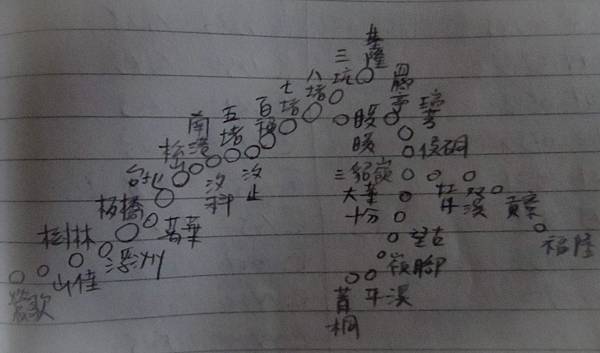 基隆
三坑
八堵
七堵
百福
五堵
南港
松山
台北
板橋
樹林
鶯歌
山佳
浮州
萬華
汐科
汐止
暖暖
瑞芳
侯硐
三貂嶺
大華
十分
牡丹
双溪
貢寮
福隆
望古
嶺腳
平溪
菁桐